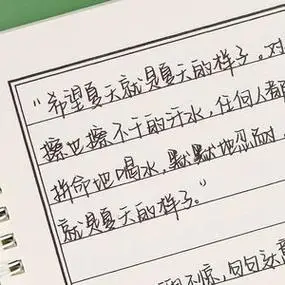 "希望夏天就是夏天的样子。对
擦也擦不干的汗水，任何人都
拼命地喝水，默默地忍耐，
就是夏天的样子。"
不惊，句句